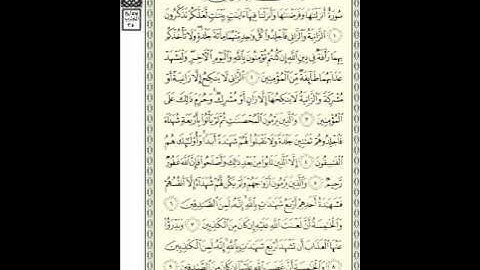 سُورَةٌ أَنزَلْنَٰهَا وَفَرَضْنَٰهَا وَأَنزَلْنَا فِيهَآ ءَايَٰتٍۭ بَيِّنَٰتٍ لَّعَلَّكُمْ تَذَكَّرُونَ
١ ٱلزَّانِيَةُ وَٱلزَّانِى فَٱجْلِدُوا۟ كُلَّ وَٰحِدٍ مِّنْهُمَا مِا۟ئَةَ جَلْدَةٍ ۖ وَلَا تَأْخُذْكُم
بِهِمَا رَأْفَةٌ فِى دِينِ ٱللَّهِ إِن كُنتُمْ تُؤْمِنُونَ بِٱللَّهِ وَٱلْيَوْمِ ٱلْءَاخِرِ ۖ وَلْيَشْهَدْ
عَذَابَهُمَا طَآئِفَةٌ مِّنَ ٱلْمُؤْمِنِينَ ٢ ٱلزَّانِى لَا يَنكِحُ إِلَّا زَانِيَةً أَوْ
مُشْرِكَةً وَٱلزَّانِيَةُ لَا يَنكِحُهَآ إِلَّا زَانٍ أَوْ مُشْرِكٌ ۚ وَحُرِّمَ ذَٰلِكَ عَلَى
ٱلْمُؤْمِنِينَ ٣ وَٱلَّذِينَ يَرْمُونَ ٱلْمُحْصَنَٰتِ ثُمَّ لَمْ يَأْتُوا۟ بِأَرْبَعَةِ شُهَدَآءَ
فَٱجْلِدُوهُمْ ثَمَٰنِينَ جَلْدَةً وَلَا تَقْبَلُوا۟ لَهُمْ شَهَٰدَةً أَبَدًا ۚ وَأُو۟لَٰٓئِكَ هُمُ
ٱلْفَٰسِقُونَ ٤ إِلَّا ٱلَّذِينَ تَابُوا۟ مِنۢ بَعْدِ ذَٰلِكَ وَأَصْلَحُوا۟ فَإِنَّ ٱللَّهَ غَفُورٌ
رَّحِيمٌ ٥ وَٱلَّذِينَ يَرْمُونَ أَزْوَٰجَهُمْ وَلَمْ يَكُن لَّهُمْ شُهَدَآءُ إِلَّآ أَنفُسُهُمْ
فَشَهَٰدَةُ أَحَدِهِمْ أَرْبَعُ شَهَٰدَٰتٍۭ بِٱللَّهِ ۙ إِنَّهُۥ لَمِنَ ٱلصَّٰدِقِينَ ٦
وَٱلْخَٰمِسَةُ أَنَّ لَعْنَتَ ٱللَّهِ عَلَيْهِ إِن كَانَ مِنَ ٱلْكَٰذِبِينَ ٧ وَيَدْرَؤُا۟
عَنْهَا ٱلْعَذَابَ أَن تَشْهَدَ أَرْبَعَ شَهَٰدَٰتٍۭ بِٱللَّهِ ۙ إِنَّهُۥ لَمِنَ ٱلْكَٰذِبِينَ
٨ وَٱلْخَٰمِسَةَ أَنَّ غَضَبَ ٱللَّهِ عَلَيْهَآ إِن كَانَ مِنَ ٱلصَّٰدِقِينَ ٩